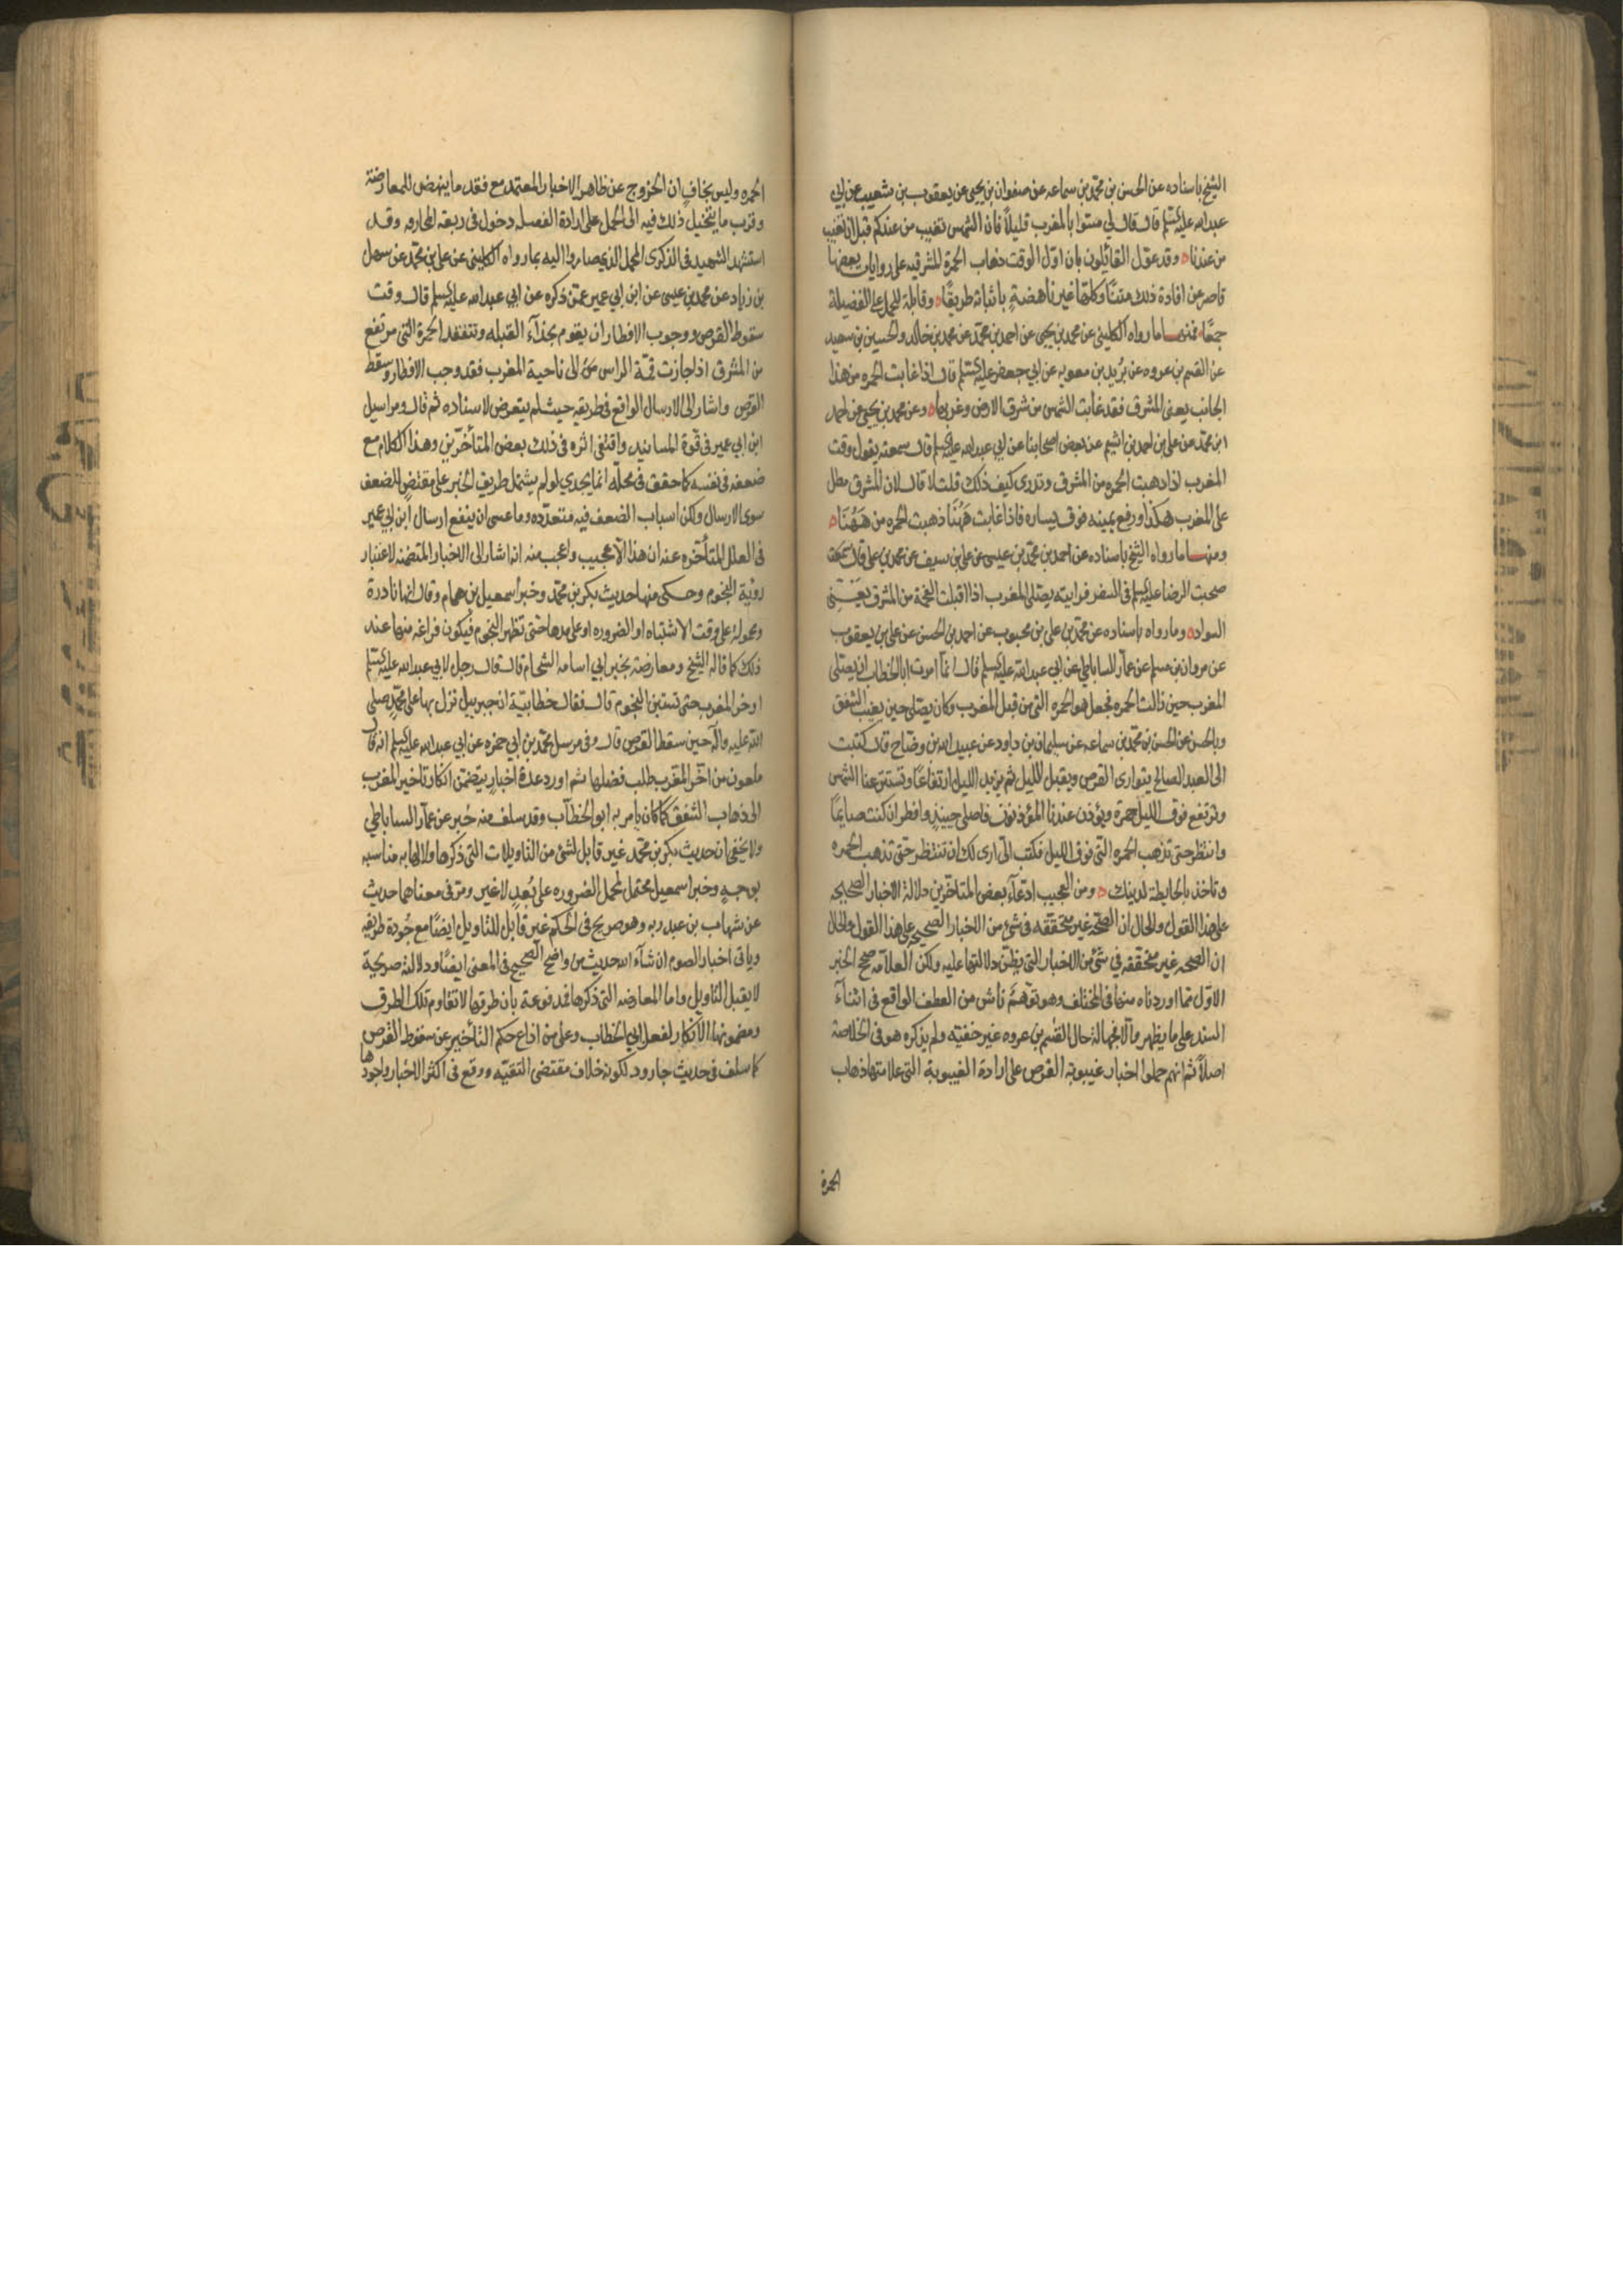 الشيخ باسناده عن الحسن بن محمد بن سماعه عن صفوان بن يحيى عن يعقوب بن شعيب عن ابي
عبد الله عليه السلم قال قال لي مسوا بالمغرب قليلاً فان الشمس تغيب من عندكم قبل ان تغيب
من عندنا ه وقد عوّل القائلون بان اوّل الوقت ذهاب الحمرة المشرقيه على روايات بعضها
قاصر عن افادة ذلك متنًا وكلها غير ناهضةٍ باثباته طريقًا ه وقابلة للحمل على الفضيلة
جمعًا فمنها ما رواه الكليني عن محمد بن يحيى عن احمد بن محمّد عن محمد بن خالد والحسين بن سعيد
عن القسم بن عروه عن بُريد بن معويه عن ابي جعفر عليه السلم قال اذا غابت الحمره من هذا
الجانب يعني المشرق فقد غابت الشمس من شرق الارض وغربها ه وعن محمد بن يحيى عن احمد
ابن محمّد عن علي بن احمد بن اشيم عن بعض اصحابنا عن ابي عبد الله عليه السلم قال سمعته يقول وقت
المغرب اذا ذهبت الحمره من المشرق وتدري كيف ذلك قلت لا قال لان المشرق مطل
على المغرب هكذا ورفع يمينه فوق يساره فاذا غابت هَهُنَا ذهبت الحمره من هَهُنَا ه
ومنها ما رواه الشيخ باسناده عن احمد بن محمّد بن عيسى عن علي بن سيف عن محمد بن علي قال
صحبت الرضا عليه السلم في السفر فرايته يصلي المغرب اذا اقبلت الفحمة من المشرق يَعْنِي
السواد ه وما رواه باسناده عن محمّد بن علي بن محبوب عن احمد بن الحسن عن علي بن يعقوب
عن مروان بن مسلم عن عمّار الساباطي عن ابي عبد الله عليه السلم قال انما امرت ابا الخطاب ان يصلى
المغرب حين زالت الحمره فجعل هو الحمره التي من قبل المغرب وكان يصلي حين يغيب الشفق
وبالحسن عن الحسن بن محمّد بن سماعه عن سليمان بن داود عن عبد الله بن وضّاح قال كتبت
الى العبد الصالح يتوارى القرص ويقبل الليل ثم يزيد الليل ارتفاعًا وتستتر عنا الشمس
وترتفع فوق الليل حمرة ويؤذن عندنا المؤذنون فاصلي حينئذٍ وافطر ان كنت صايمًا
وانتظر حتى تذهب الحمره التي فوق الليل فكتب اليّ ارى لك ان تنتظر حتى تذهب الحمره
وتاخذ بالحايطة لدينك ه ومن العجيب ادعآء بعض المتاخّرين دلالة الاخبار الصحيحه
على هذا القول والحال ان الصحّة غير متحققه في شئ من الاخبار الصحيح على هذا القول والحال
ان الصحه غير متحققه في شئ من الاخبار التي يظن دلالتها عليه ولكن العلاّمه صحح الخبر
الاوّل مما اوردناه منها في المختلف وهو توهّم ناش من العطف الواقع في اثنآء
السند على ما يظهر والا فجهالة حال القسم بن عروه غير خفيّه ولم يذكره هو في الخلاصة
اصلاً ثم انهم حملوا اخبار غيبوبة القرص على ارادة الغيبوبة التي علامتها ذهاب
الحمرة
الحمره وليس بخافٍ ان الخروج عن ظاهر الاخبار المعتمد مع فقد ما ينهض للمعارضة
وقرب ما يتخيل ذلك فيه الى الحمل على ارادة الفضل دخول في ربقة المجازفه وقد
استشهد الشهيد في الذكرى للحمل الذي صاروا اليه بما رواه الكليني عن علي بن محمّد عن سهل
بن زياد عن محمد بن عيسى عن ابن ابي عمير عمّن ذكره عن ابي عبد الله عليه السلم قال وقت
سقوط القرص ووجوب الافطار ان يقوم بحذآء القبله وتتفقد الحمرة التي ترتفع
من المشرق اذا جازت قمّة الراس الى ناحية المغرب فقد وجب الافطار وسقط
القرص واشار الى الارسال الواقع في طريقه حيث لم يتعرض لاسناده ثم قال ومراسيل
ابن ابي عمير في قوة المسانيد واقتفى اثره في ذلك بعض المتأخّرين وهذا الكلام مع
ضعفه في نفسه كما حقق في محلّه انما يجدي لو لم يشتمل طريق الخبر على مقتضٍ للضعف
سوى الارسال ولكن اسباب الضعف فيه متعدّده وما عسى ان ينفع ارسال ابن ابي عمير
في العلل المتأخره عنه ان هذا الا عجيب واعجب منه انه اشار الى الاخبار المتضمنة لاعتبار
رؤية النجوم وحكى منها حديث بكر بن محمّد وخبر اسمعيل بن همام وقال انها نادرة
ومحموله على وقت الاشتباه او الضروره او على مدها حتى تظهر النجوم فيكون فراغه منها عند
ذلك كما قاله الشيخ ومعارضة بخبر ابي اسامه الشحّام قال قال رجل لابي عبد الله عليه السلم
اوخر المغرب حتى تستبين النجوم قال فقال خطابية ان جبرييل نزل بها على محمّدٍ صلى
الله عليه وآله حين سقط القرص قال وفي مرسل محمّد بن ابي حمزه عن ابي عبد الله عليه السلم انه قال
ملعون من اخّر المغرب طلب فضلها ثم اورد عدة اخبار يتضمّن انكار تاخير المغرب
الى ذهاب الشفق كما كان يامر به ابو الخطّاب وقد سلف منه خبر عن عمّار الساباطي
ولا يخفى ان حديث بكر بن محمّد غير قابل لشئ من التاويلات التي ذكرها ولا لها به مناسبه
بوجهٍ وخبر اسمعيل محتمل لحمل الضروره على بُعدٍ لا غير ومرّ في معناهما حديث
عن شهاب بن عبد ربه وهو صريح في الحكم غير قابل للتاويل ايضًا مع جُودة طريقه
وياتي اخبار الصوم ان شآء الله حديث من واضح الصحيح في المعنى ايضًا ودلالته صريحة
لا يقبل التاويل واما المعارضه التي ذكرها فمدفوعة بان طرقها لا تقاوم تلك الطرق
ومضمونها الانكار لفعل ابي الخطاب وعلى من اذاع حكم التأخير عن سقوط القرص
كما سلف في حديث جارود لكونه خلاف مقتضى التقيّه ووقع في اكثر الاخبار واجودها